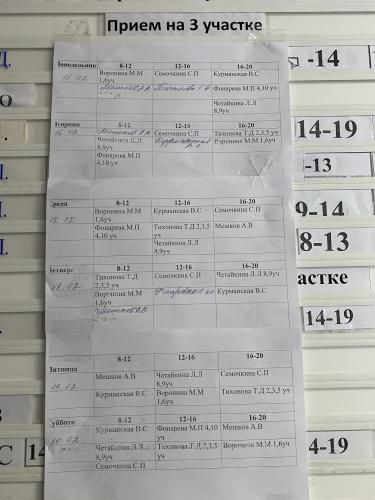 Прием на 3 участке
Понедельник 8-12 12-16 16-20
15 02 Воронина М.М Семочкина С.П Курманская В.С
1,6уч
Мешков А.В Фонарева М.П 4,10 уч
Четайкина Л.Л
8,9уч
Вторник 8-12 12-16 16-20
16 02 Мешков А.В Семочкина С.П Тихонова Т.Д 2,3,5 уч
Четайкина Л.Л Воронина М.М 1,6уч
8,9уч
Фонарева М.П
4,10 уч
Среда 8-12 12-16 16-20
17 02 Воронина М.М Курманская В.С Семочкина С.П
1,6уч
Фонарева М.П Тихонова Т.Д 2,3,5 уч Мешков А.В
4,10 уч
Четайкина Л.Л
8,9уч
Четверг 8-12 12-16 16-20
18 02 Тихонова Т.Д Семочкина С.П Четайкина Л.Л 8,9уч
2,3,5 уч
Воронина М.М Курманская В.С
1,6уч
Мешков А.В
Пятница 8-12 12-16 16-20
19 02 Мешков А.В Четайкина Л.Л Семочкина С.П
8,9уч
Курманская В.С Воронина М.М Тихонова Т.Д 2,3,5 уч
1,6уч
Суббота 8-12 12-16 16-20
20 02 Курманская В.С Фонарева М.П 4,10 Мешков А.В
уч
Четайкина Л.Л Тихонова Т.Д 2,3,5 Воронина М.М 1,6уч
8,9уч уч
Семочкина С.П
-14
14-19
-13
9-14
8-13
астке
14-19
4-19
С 14